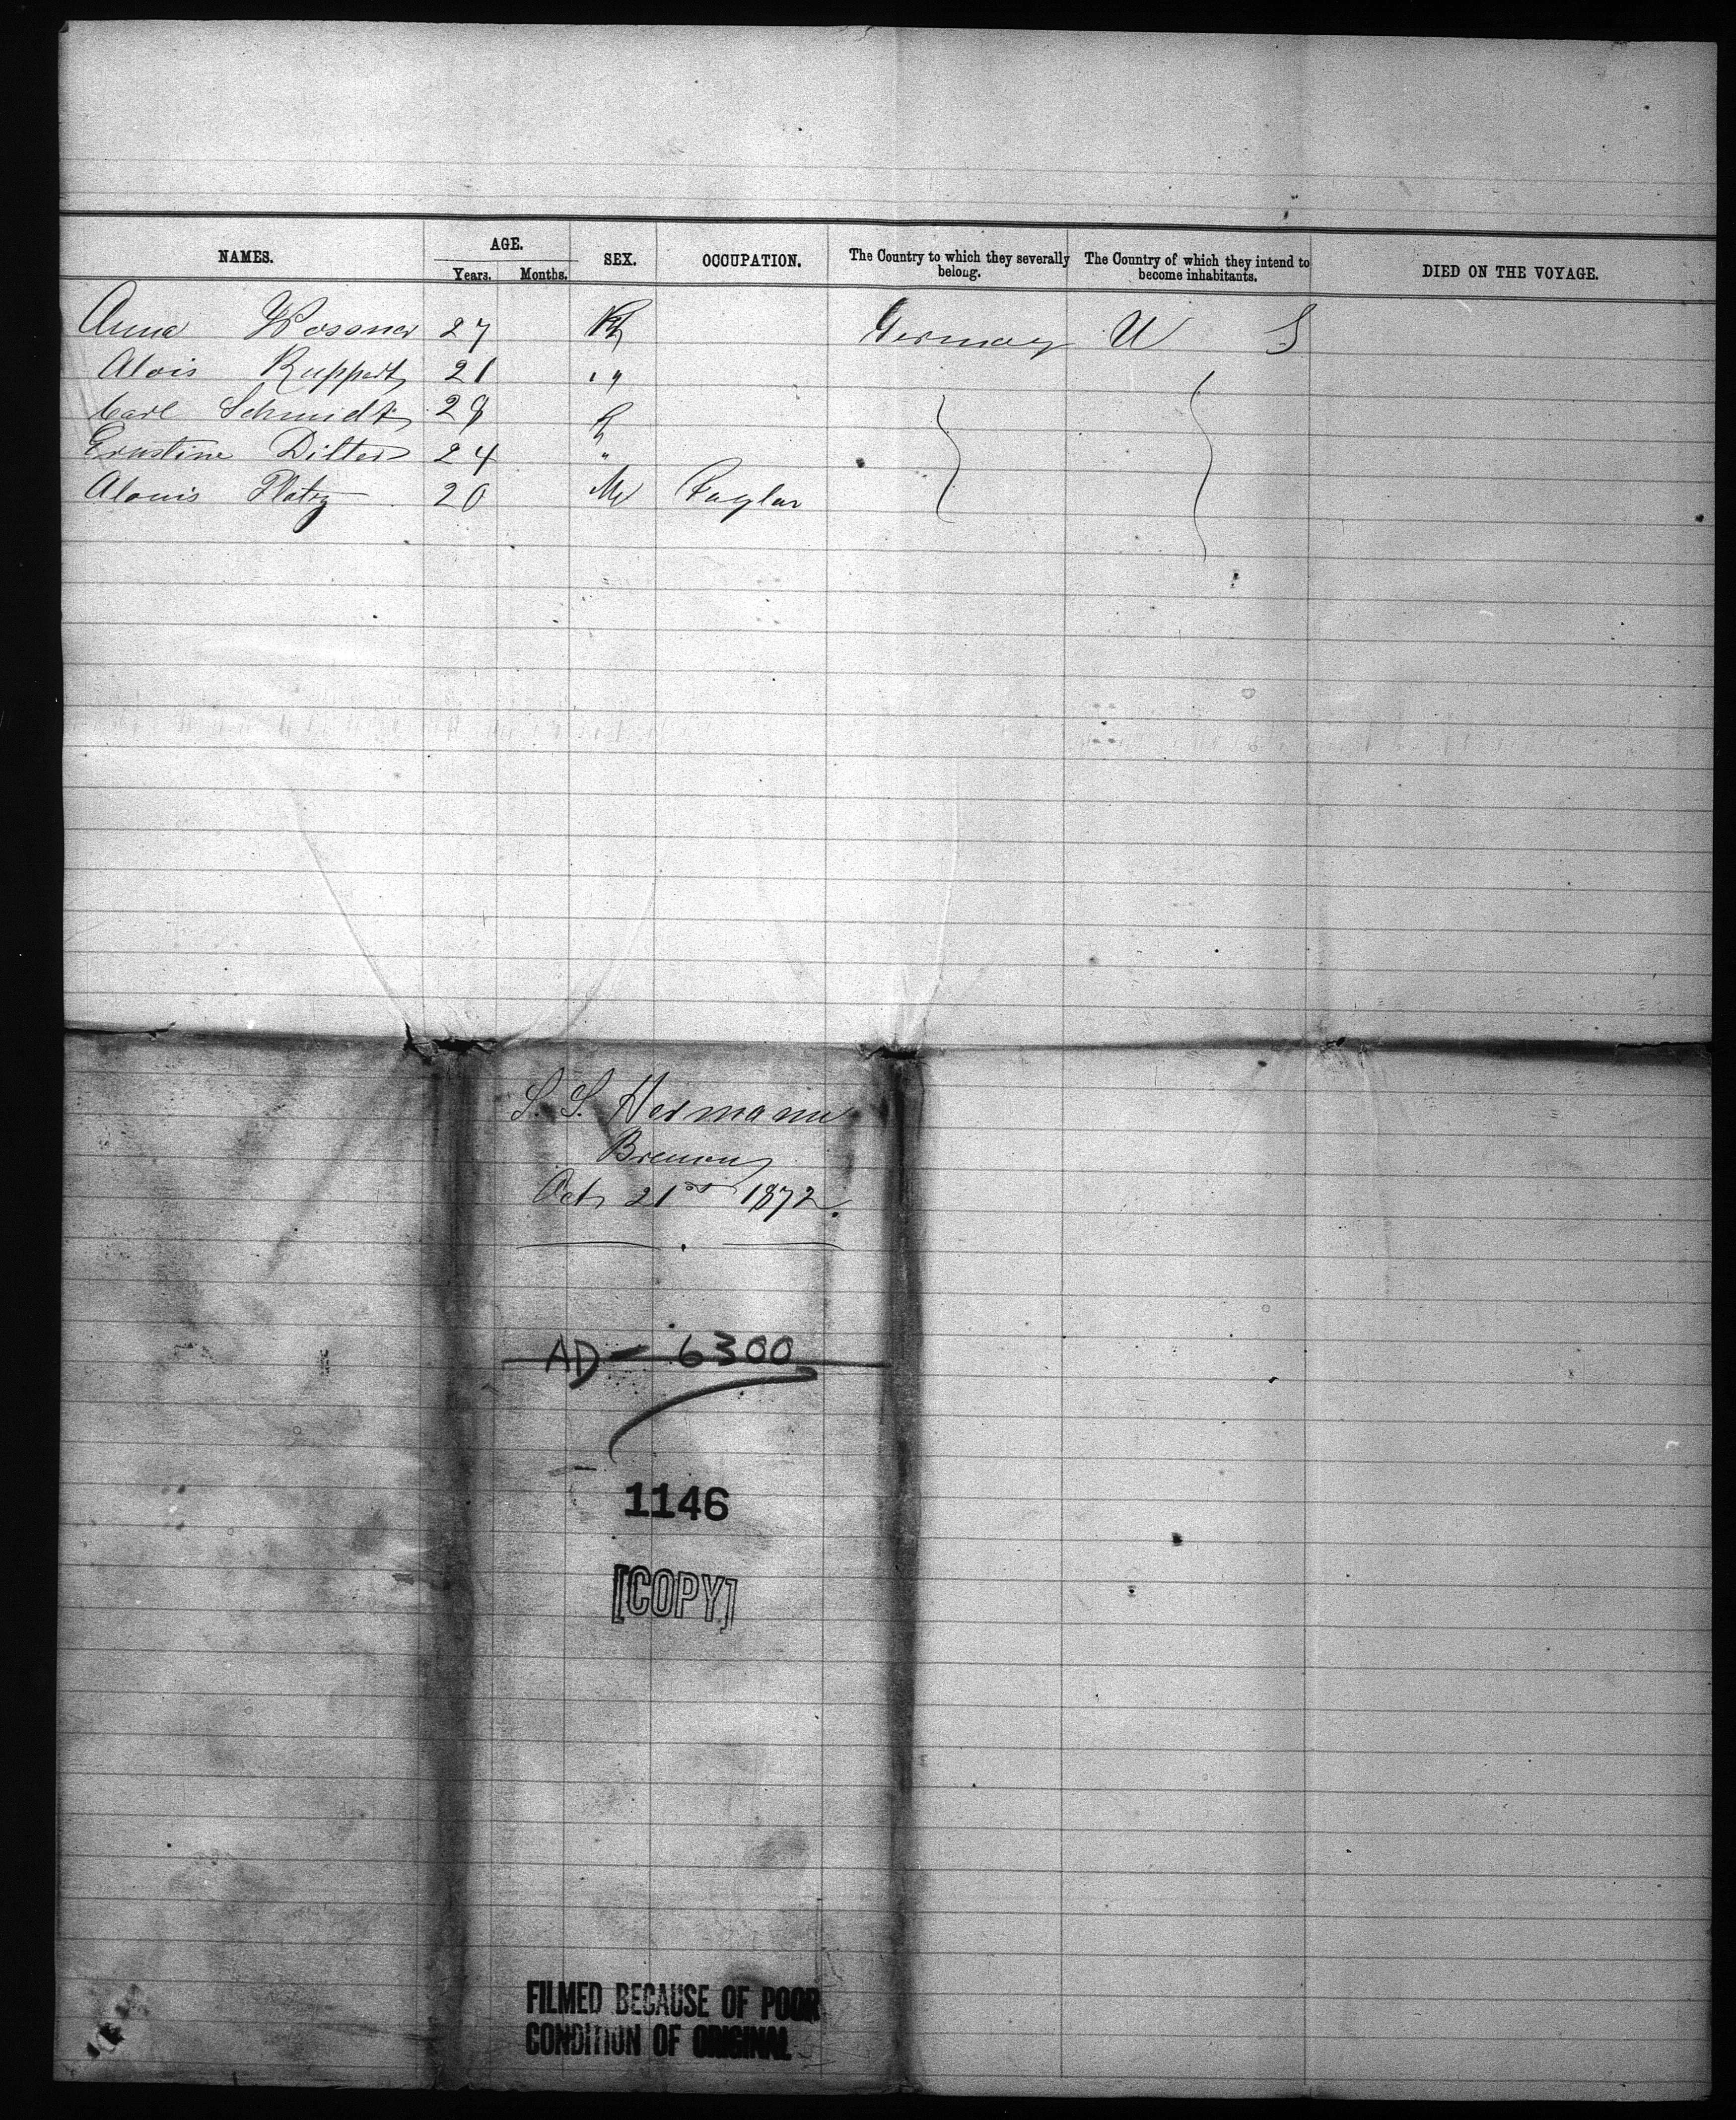 NAMES. AGE. Years. Months. SEX. OCCUPATION. The Country to which they severally belong. The Country of which they intend to become inhabitants. DIED ON THE VOYAGE.
Anna 27 Germany U S
Alois Ruppert 21 "
Carl Schmidt 28
Ernstine Ditter 24 "
Alouis Platz 20 M
S. S. Hermann
Bremen
Oct 21st 1872.
AD- 6300
1146
[COPY]
FILMED BECAUSE OF POOR
CONDITION OF ORIGINAL